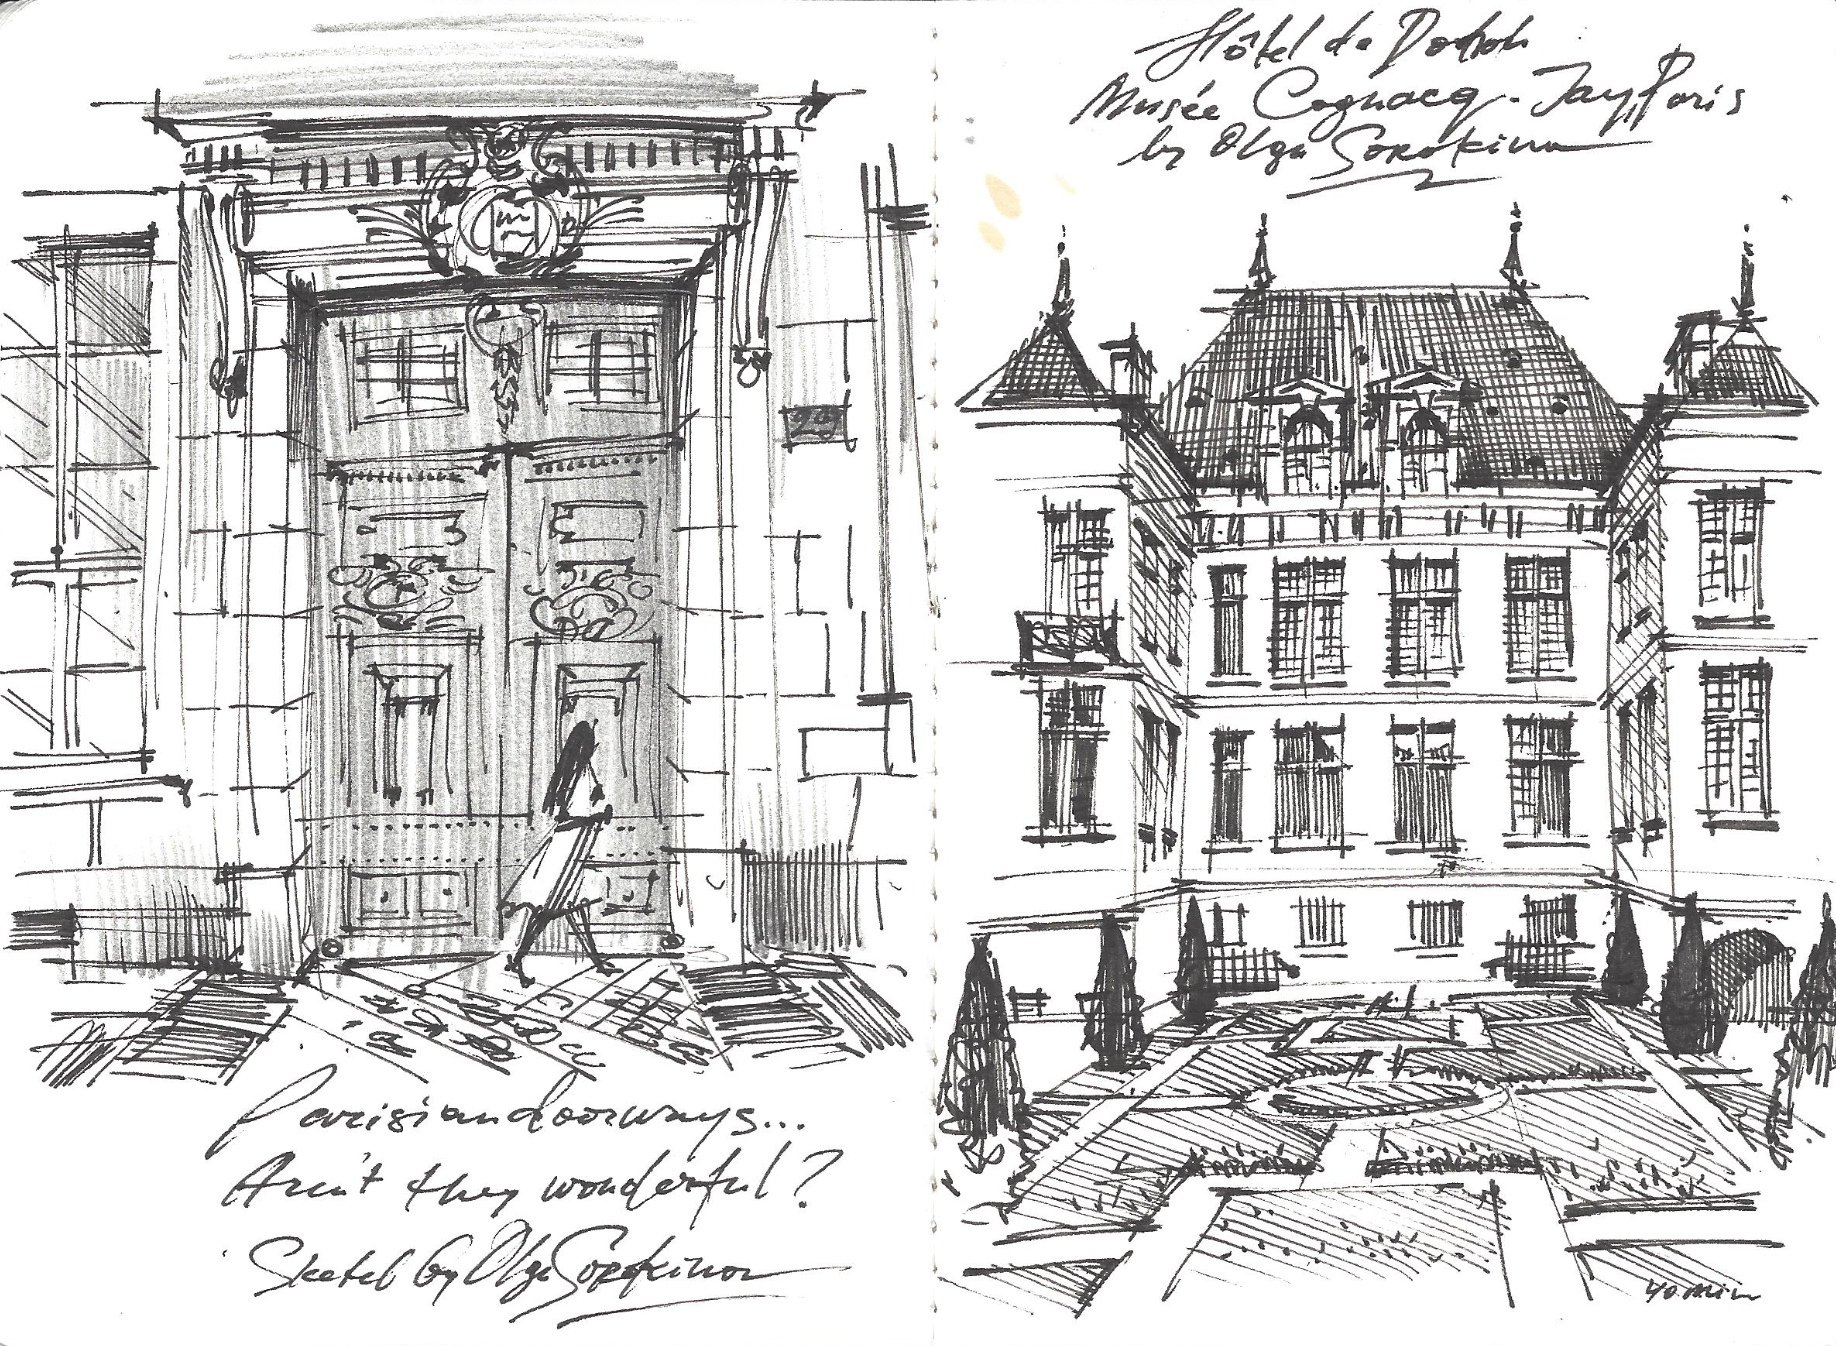 29
Parisian doorways...
Aren't they wonderful?
Sketch by Olga Sorokina
Hôtel de Donon
Musée Cognacq-Jay, Paris
by Olga Sorokina
40 min